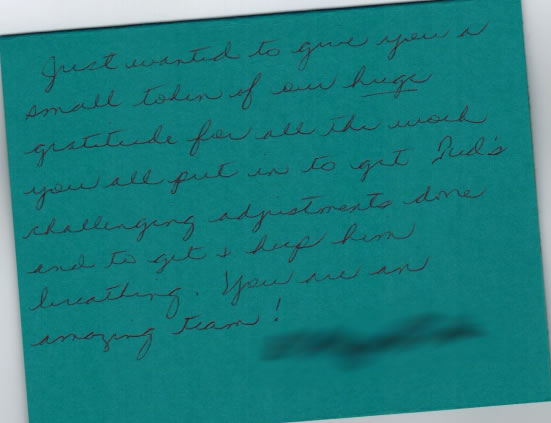 Just wanted to give you a
small token of our huge
gratitude for all the work
you all put in to get Fred's
challenging adjustments done
and to get & keep him
breathing. You are an
amazing team!